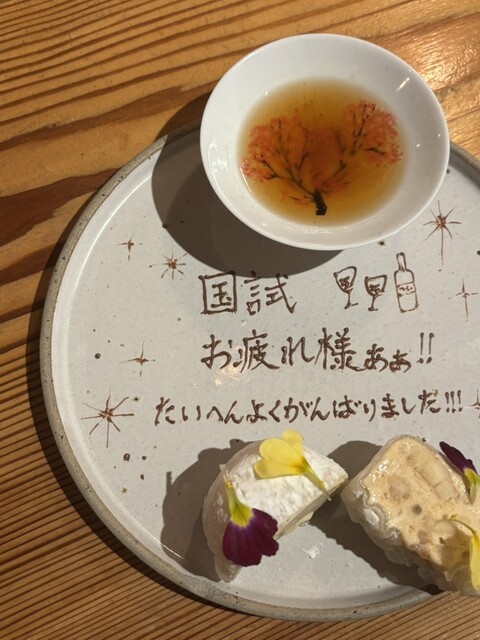 国試
お疲れ様ぁぁ!!
たいへんよくがんばりました!!!